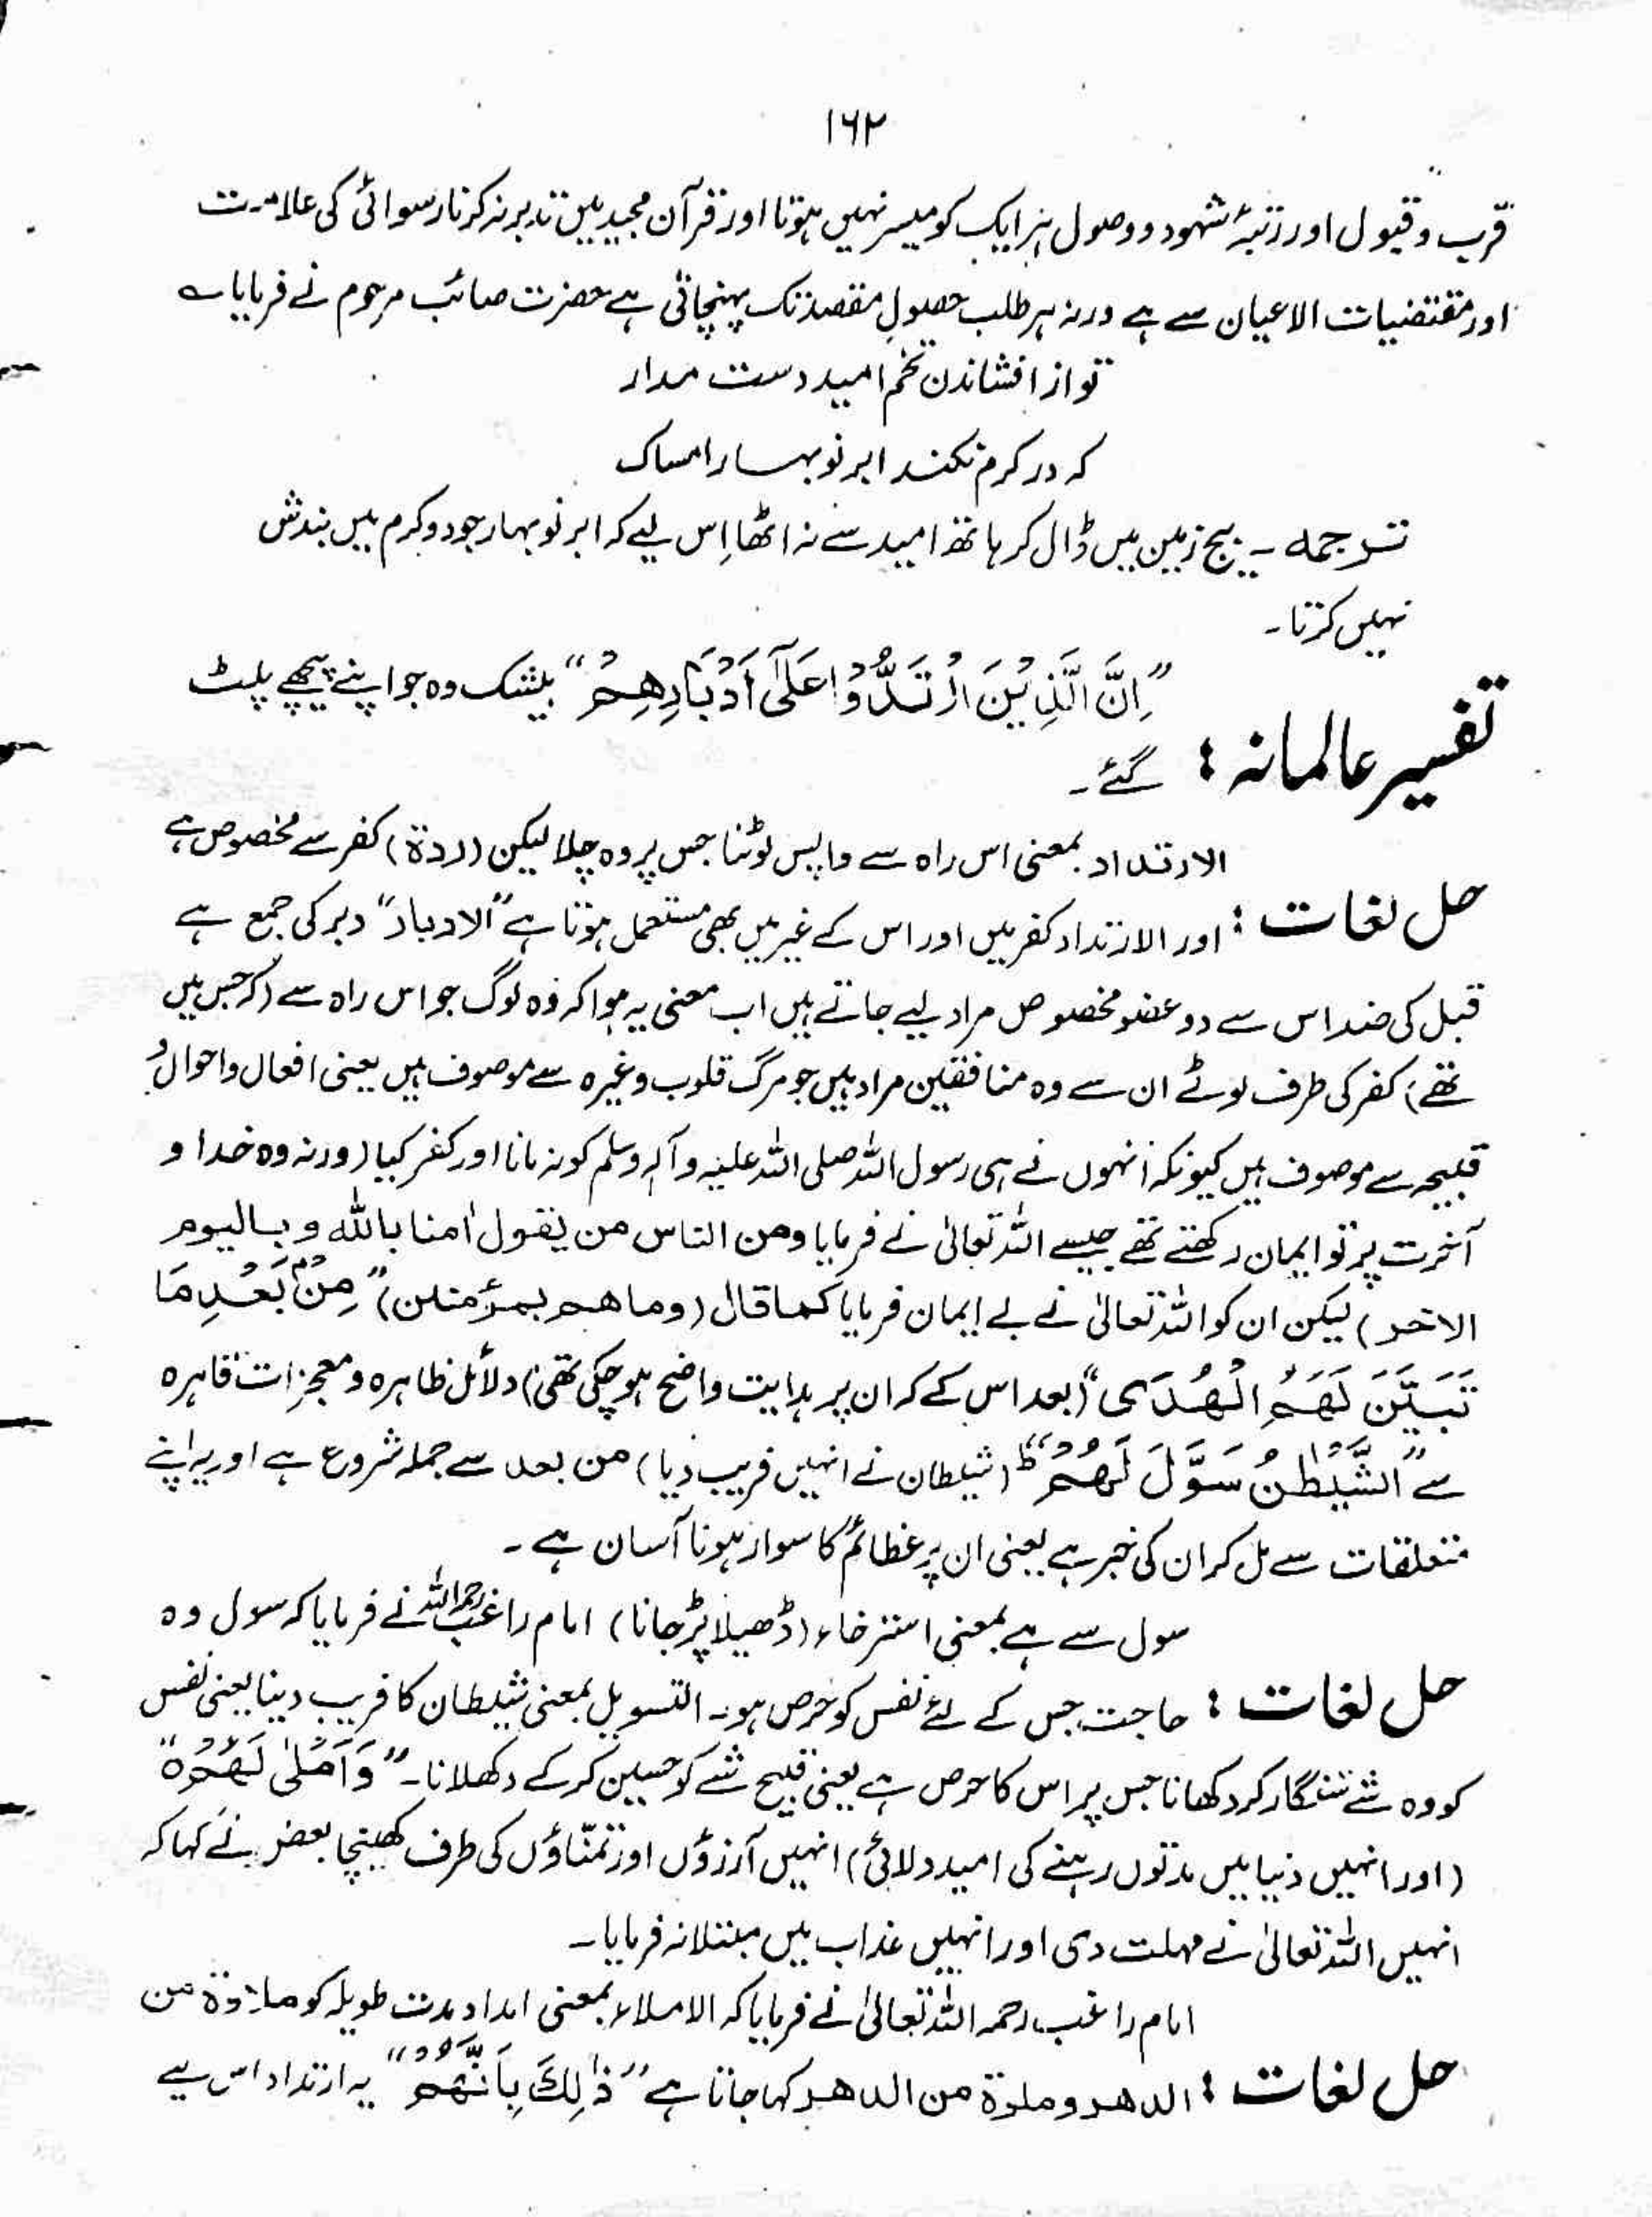 ۱۶۲
قرب و قبول اور رتبۂ شہود و وصول ہر ایک کو میسر نہیں ہوتا اور قرآن مجید میں تدبر نہ کرنا رسوائی کی علامت
اور مقتضیات الاعیان سے ہے ورنہ ہر طلب حصولِ مقصد تک پہنچاتی ہے حضرت صائب مرحوم نے فرمایا ؎
تو از افشاندن تخم امید دست مدار
کہ در کرم نکند ابر نو بہار امساک
ترجمہ ۔ بیج زمین میں ڈال کر ہاتھ امید سے نہ اٹھا اِس لیے کہ ابر نو بہار جود و کرم میں بندش
نہیں کرتا ۔
تفسیر عالمانہ : "اِنَّ الَّذِیْنَ ارْتَدُّوْا عَلٰۤی اَدْبَارِهِمْ" بیشک وہ جو اپنے پیچھے پلٹ
گئے ۔
الارتداد بمعنی اس راہ سے واپس لوٹنا جس پر وہ چلا لیکن (ردۃ) کفر سے مخصوص ہے
حل لغات : اور الارتداد کفر میں اور اس کے غیر میں بھی مستعمل ہوتا ہے "الادبار" دبر کی جمع ہے
قبل کی ضد اس سے دو عضو مخصوص مراد لیے جاتے ہیں اب معنی یہ ہوا کہ وہ لوگ جو اس راہ سے (کہ جس میں
تھے) کفر کی طرف لوٹے ان سے وہ منافقین مراد ہیں جو مرگ قلوب وغیرہ سے موصوف ہیں یعنی افعال و احوال
قبیحہ سے موصوف ہیں کیونکہ انہوں نے ہی رسول اللہ صلی اللہ علیہ وآلہ وسلم کو نہ مانا اور کفر کیا (ورنہ وہ خدا و
آخرت پر تو ایمان رکھتے تھے جیسے اللہ تعالیٰ نے فرمایا ومن الناس من یقول اٰمنا باللہ و بالیوم
الاخر) لیکن ان کو اللہ تعالیٰ نے بے ایمان فرمایا کما قال (وما هم بمؤمنین) "مِنْۢ بَعْدِ مَا
تَبَیَّنَ لَهُمُ الْهُدَی" (بعد اس کے کہ ان پر ہدایت واضح ہو چکی تھی) دلائل ظاہرہ و معجزات قاہرہ
سے "الشَّیْطٰنُ سَوَّلَ لَهُمْ ط" (شیطان نے انہیں فریب دیا) من بعد سے جملہ شروع ہے اور یہ اپنے
متعلقات سے مل کر ان کی خبر ہے یعنی ان پر عظائم کا سوار ہونا آسان ہے ۔
سول سے ہے بمعنی استرخاء (ڈھیلا پڑ جانا) امام راغب رحمہ اللہ نے فرمایا کہ سول وہ
حل لغات : حاجت جس کے لئے نفس کو حرص ہو ۔ التسویل بمعنی شیطان کا فریب دینا یعنی نفس
کو وہ شے سنگار کر دکھانا جس پر اس کا حرص ہے یعنی قبیح شے کو حسین کرکے دکھلانا ۔ "وَاَمْلٰی لَهُمْ ہ"
(اور انہیں دنیا میں مدتوں رہنے کی امید دلائی) انہیں آرزؤں اور تمنّاؤں کی طرف کھینچا بعض نے کہا کہ
انہیں اللہ تعالیٰ نے مہلت دی اور انہیں عذاب میں مبتلا نہ فرمایا ۔
امام راغب رحمہ اللہ تعالیٰ نے فرمایا کہ الاملاء بمعنی امداد مدت طویلہ کو ملاوۃ من
حل لغات : الدهر و ملوۃ من الدهر کہا جاتا ہے "ذٰلِکَ بِاَنَّهُمْ" یہ ارتداد اس لیے